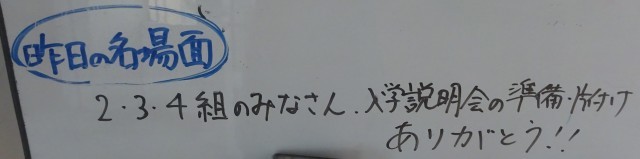 昨日の名場面
2・3・4組のみなさん、入学説明会の準備・片付け
ありがとう!!